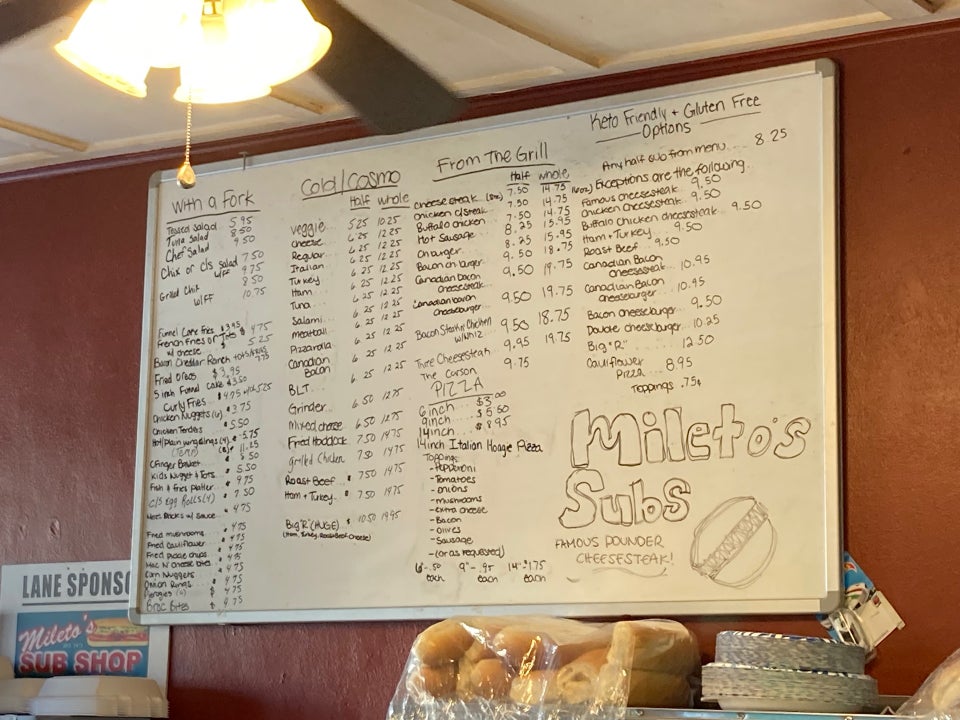 With a Fork
Tossed Salad 5.95
Tuna Salad 8.50
Chef Salad 9.50
Chix or c/s salad 7.50
w/FF 9.75
Grilled Chix 8.50
w/FF 10.75
Funnel Cake Fries $3.95
French Fries or Tots $4.75
w/ cheese $ 5.25
Bacon Cheddar Ranch tots/fries
Fried Oreos $3.95
5 inch Funnel Cake $3.50
Curly Fries $4.75 w/ch 5.25
Chicken Nuggets (6) $3.75
Chicken Tenders $5.50
Hot/Plain wingdings (4) $5.75
C/Finger Basket $ 8.50
Kids Nugget & Tots $5.50
Fish & Fries platter $ 9.75
C/S Egg Rolls (4) $ 7.50
Mozz Sticks w/ Sauce $ 4.75
Fried mushrooms $ 4.75
Fried cauliflower $ 4.75
Fried pickle chips $ 4.75
Mac N cheese Bites $ 4.75
Corn Nuggets $ 4.75
Onion Rings $ 4.75
$ 4.75
Broc Bites $ 4.75
Cold/Cosmo
Half whole
veggie 5.25 10.25
cheese 6.25 12.25
Regular 6.25 12.25
Italian 6.25 12.25
Turkey 6.25 12.25
Ham 6.25 12.25
Tuna 6.25 12.25
Salami 6.25 12.25
meatball 6.25 12.25
Pizzarolla 6.25 12.25
Canadian
Bacon 6.25 12.25
BLT 6.50 12.75
Grinder 6.50 12.75
Mixed cheese 6.50 12.75
Fried Haddock 7.50 14.75
grilled Chicken 7.50 14.75
Roast Beef 7.50 14.75
Ham + Turkey 7.50 14.75
Big "R" (HUGE) $ 10.50 19.95
(Ham, Turkey, Roast Beef, Cheese)
From The Grill
Half whole
cheese steak (8oz) 7.50 14.75 (16oz)
chicken c/steak 7.50 14.75
Buffalo chicken 7.50 14.75
Hot Sausage 8.25 15.95
Ch burger 8.25 15.95
Bacon ch burger 9.50 18.75
Canadian bacon
cheesesteak 9.50 19.75
Canadian bacon
cheeseburger 9.50 19.75
Bacon Steak or Chicken 9.50 18.75
Three Cheesesteak 9.95 19.75
The Carson 9.75
PIZZA
6 inch $3.00
9 inch $5.50
14 inch $8.95
14 inch Italian Hoagie Pizza
Toppings:
-Pepperoni
-Tomatoes
-onions
-mushrooms
-extra cheese
-Bacon
-olives
-Sausage
-(or as requested)
6"-.50 9"-.95 14"-$1.75
each each each
Keto Friendly + Gluten Free
Options
Any half sub from menu... 8.25
Exceptions are the following
Famous cheesesteak. 9.50
Chicken Cheesesteak. 9.50
Buffalo Chicken cheesesteak. 9.50
Ham + Turkey... 9.50
Roast Beef... 9.50
Canadian Bacon
cheesesteak... 10.95
Canadian Bacon
cheeseburger. 10.95
Bacon cheeseburger. 9.50
Double cheeseburger. 10.25
Big "R".. 12.50
Cauliflower
Pizza 8.95
Toppings .75¢
Mileto's
Subs
FAMOUS POUNDER
CHEESESTEAK!
LANE SPONSO
Mileto's
SUB SHOP